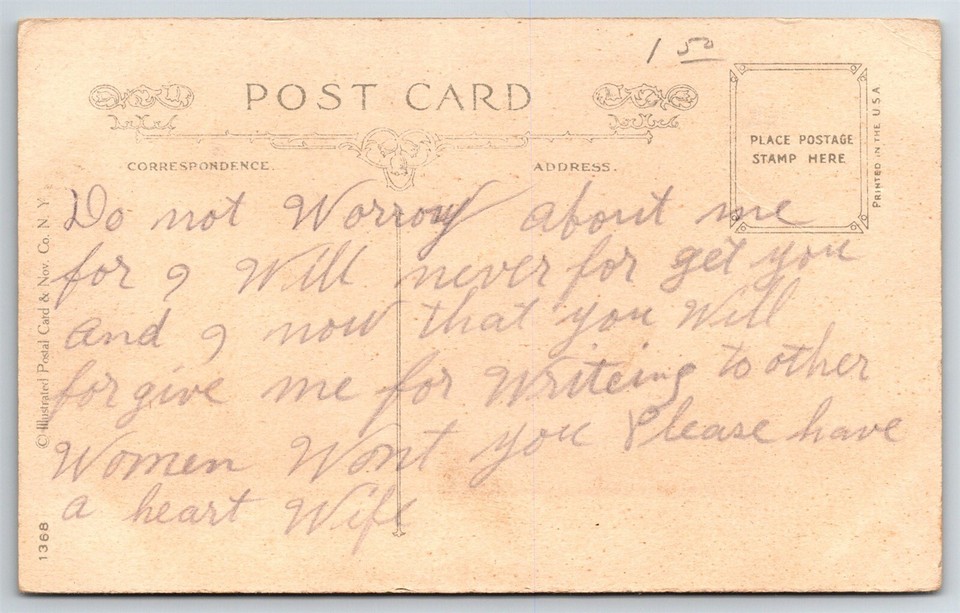 1 50
POST CARD
CORRESPONDENCE.
ADDRESS.
PLACE POSTAGE
STAMP HERE
PRINTED IN THE U.S.A.
© Illustrated Postal Card & Nov. Co. N. Y.
1368
Do not Worrory about me
for I Will never for get you
and I now that you Will
forgive me for Writeing to other
Women Wont you Please have
a heart Wife